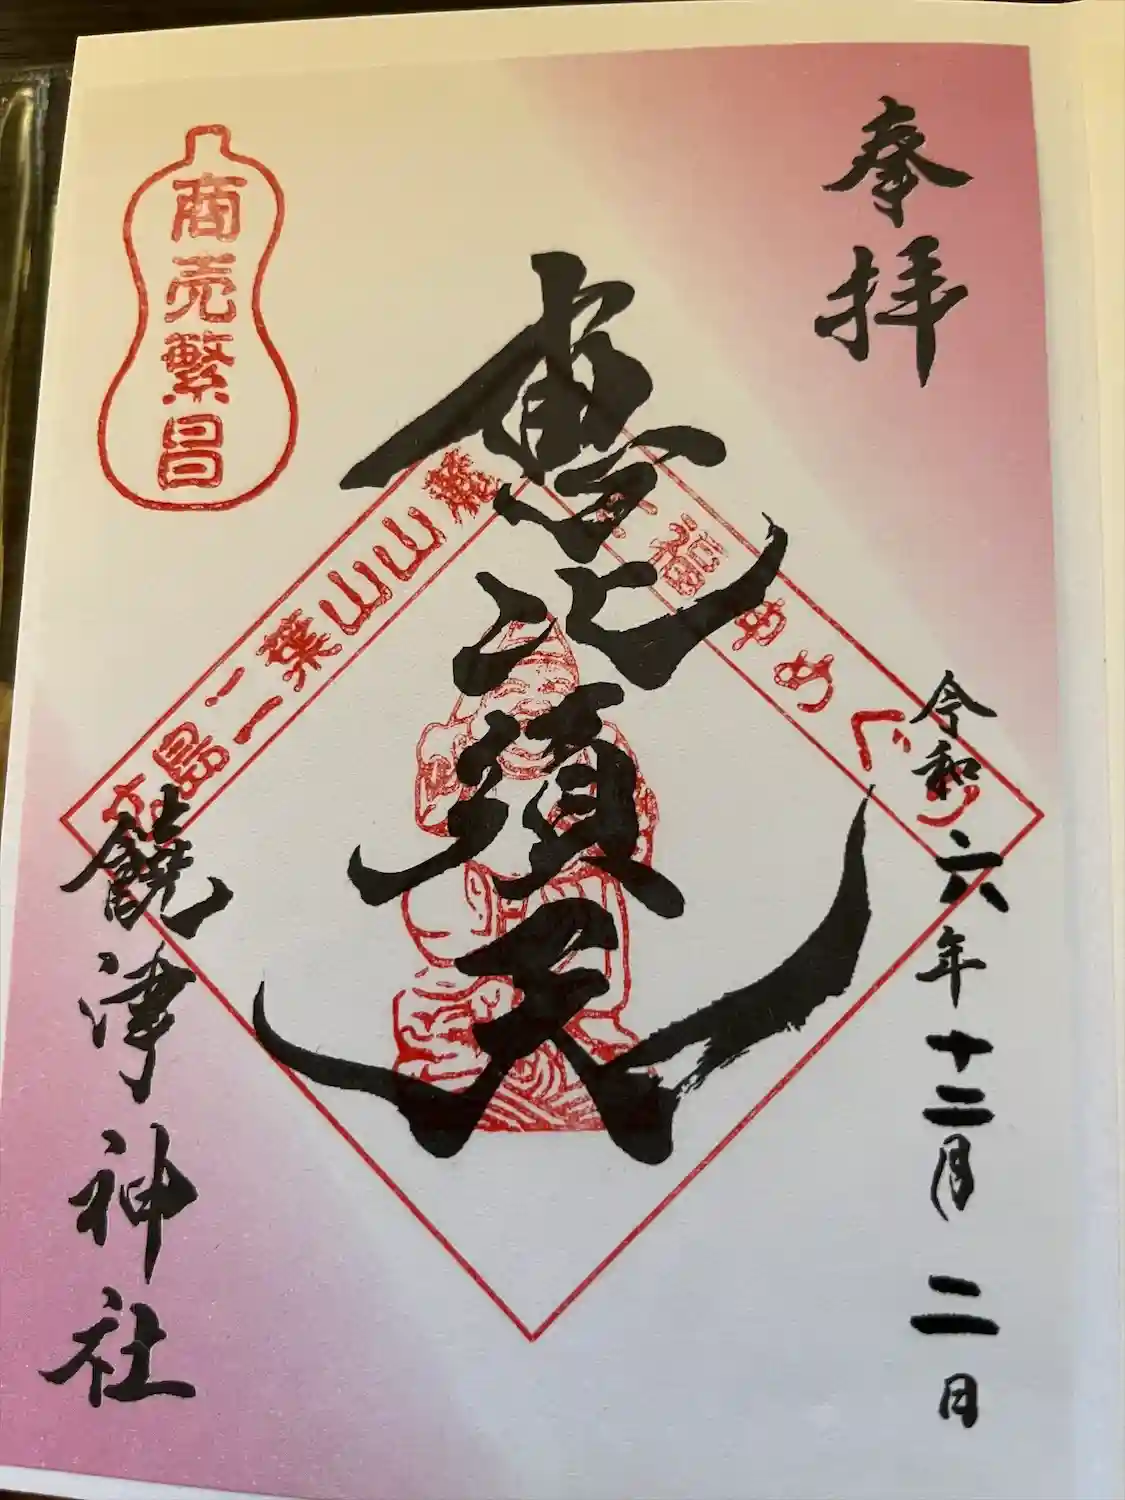 奉拝
令和六年十二月二日
恵比須天
商売繁昌
広島二葉山山麓
七福神めぐり
饒津神社